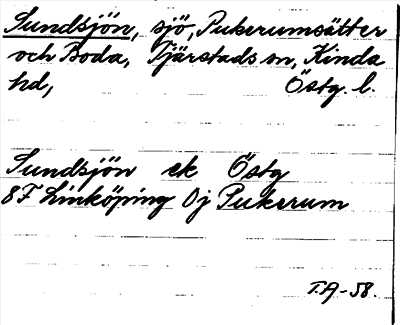 Sundsjön, sjö, Pukerumsätter
och Boda, Tjärstads sn, Kinda
hd, Östg. l.
Sundsjön ek Östg
8F Linköping Oj Pukerum
T.A-58.